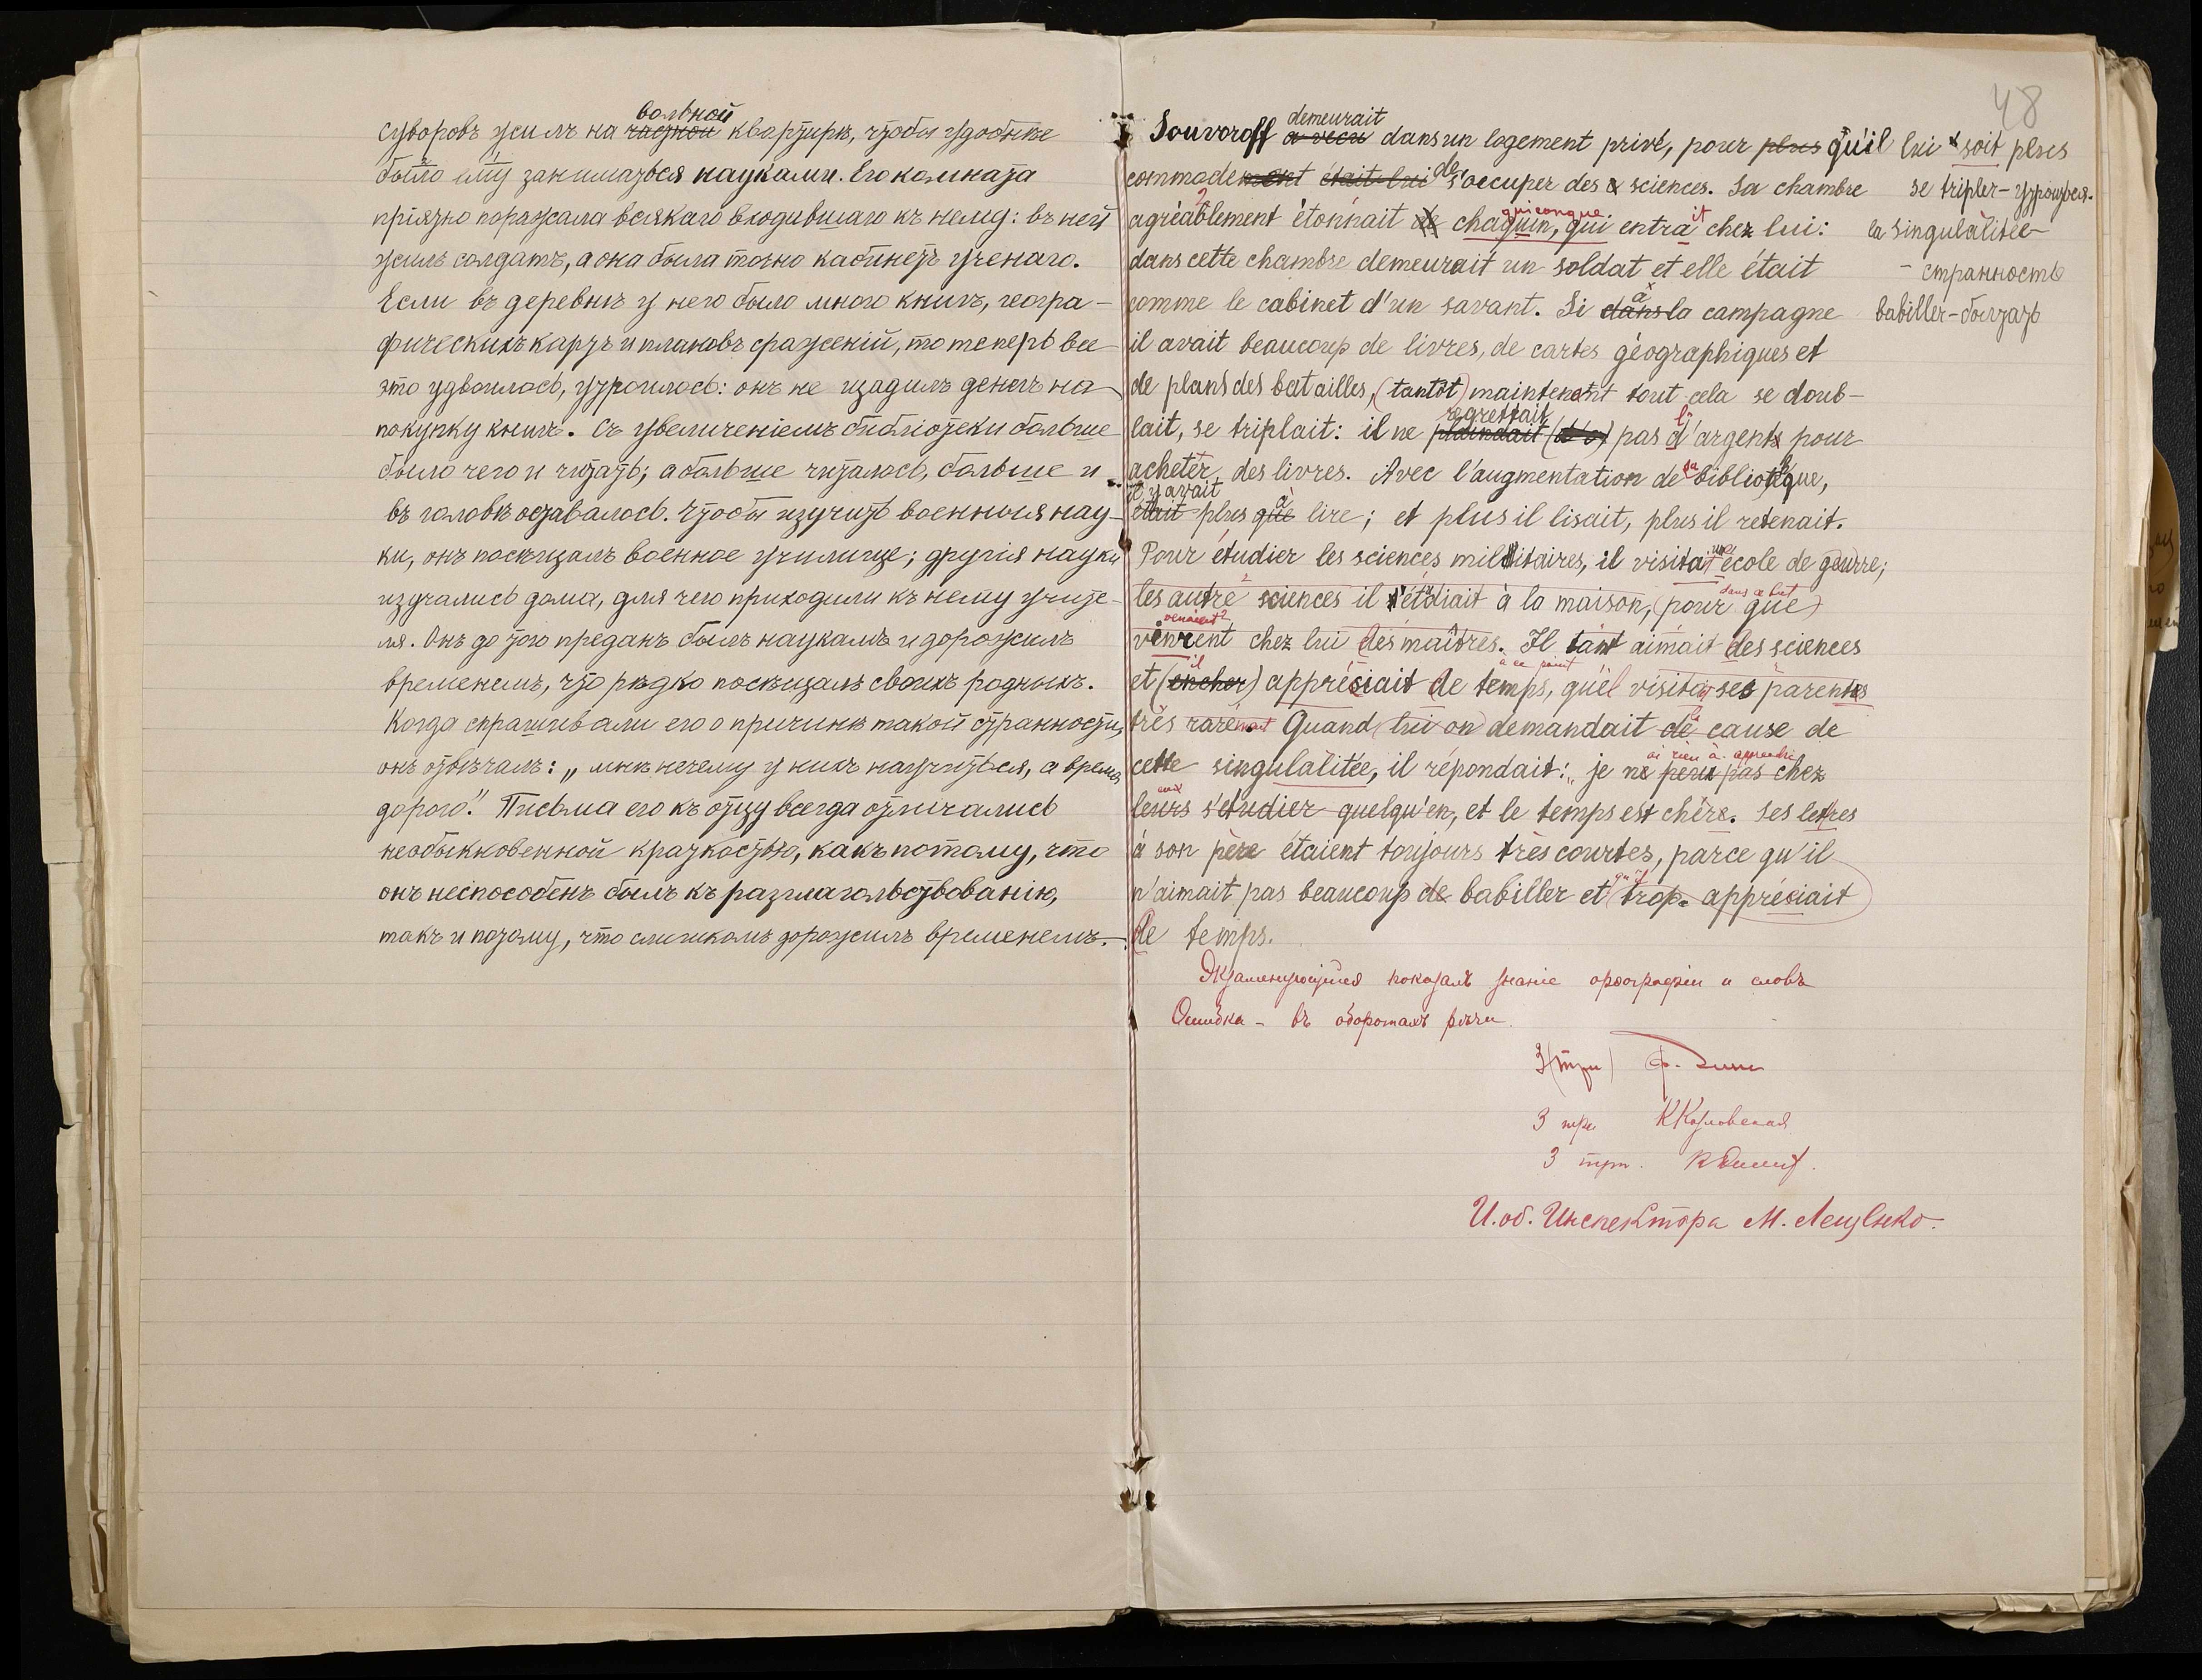 вольной
Суворовъ жилъ на частной квартирѣ, чтобы удобнѣе
было ему заниматься науками. Его комната
пріятно поражала всякаго входившаго къ нему: въ ней
жилъ солдатъ, а она была точно кабинетъ ученаго.
Если въ деревнѣ у него было много книгъ, геогра-
фическихъ картъ и плановъ сраженій, то теперь все
это удвоилось, утроилось: онъ не щадилъ денегъ на
покупку книгъ. Съ увеличеніемъ библіотеки больше
было чего и читать; а больше читалось, больше и
въ головѣ оставалось. Чтобы изучить военныя нау-
ки, онъ посѣщалъ военное училище; другія науки
изучались дома, для чего приходили къ нему учите-
ля. Онъ до того преданъ былъ наукамъ и дорожилъ
временемъ, что рѣдко посѣщалъ своихъ родныхъ.
Когда спрашивали его о причинѣ такой странности,
онъ отвѣчалъ: „мнѣ нечему у нихъ научиться, а время
дорого." Письма его къ отцу всегда отличались
необыкновенной краткостью, какъ потому, что
онъ неспособенъ былъ къ разглагольствованію,
такъ и потому, что слишкомъ дорожилъ временемъ.
48
demeurait
Souvoroff a vécu dans un logement privé, pour plus qu'il lui soit plus
commodement était lui de s'occuper des sciences. Sa chambre
quiconque it
agréablement étonnait de chaquin, qui entra chez lui:
dans cette chambre demeurait un soldat et elle était
à
comme le cabinet d'un savant. Si dans la campagne
il avait beaucoup de livres, de cartes géographiques et
de plans des batailles, (tantôt) maintenant tout cela se doub-
regrettait l'
lait, se triplait: il ne plaindait pas d'argent pour
sa
acheter des livres. Avec l'augmentation de bibliothèque,
il y avait à
était plus que lire; et plus il lisait, plus il retenait.
une
Pour étudier les sciences militaires, il visitait école de geurre;
dans ce but
les autre sciences il étudiait à la maison, (pour que)
venaient
vinrent chez lui des maîtres. Il tant aimait des sciences
il à ce point
et (encher) appréciait de temps, qu'el visitait ses parents
la
très rarement. Quand lui on demandait de cause de
ai rien à apprendre
cette singulalitée, il répondait: „je ne peux pas chez
eux
leurs s'etudier quelqu'en, et le temps est chère. Ses lettres
à son père étaient toujours très courtes, parce qu'il
qu'il
n'aimait pas beaucoup de babiller et trop appréciait
de temps.
se tripler - утроиться.
la singulalitée -
- странность
babiller - болтать
Экзаменующійся показалъ знаніе орѳографіи и словъ
Ошибка - въ оборотахъ рѣчи.
3 (три) Ф.
3 три К Козловская
3 три. К
И. об. Инспектора М. Лещенко.